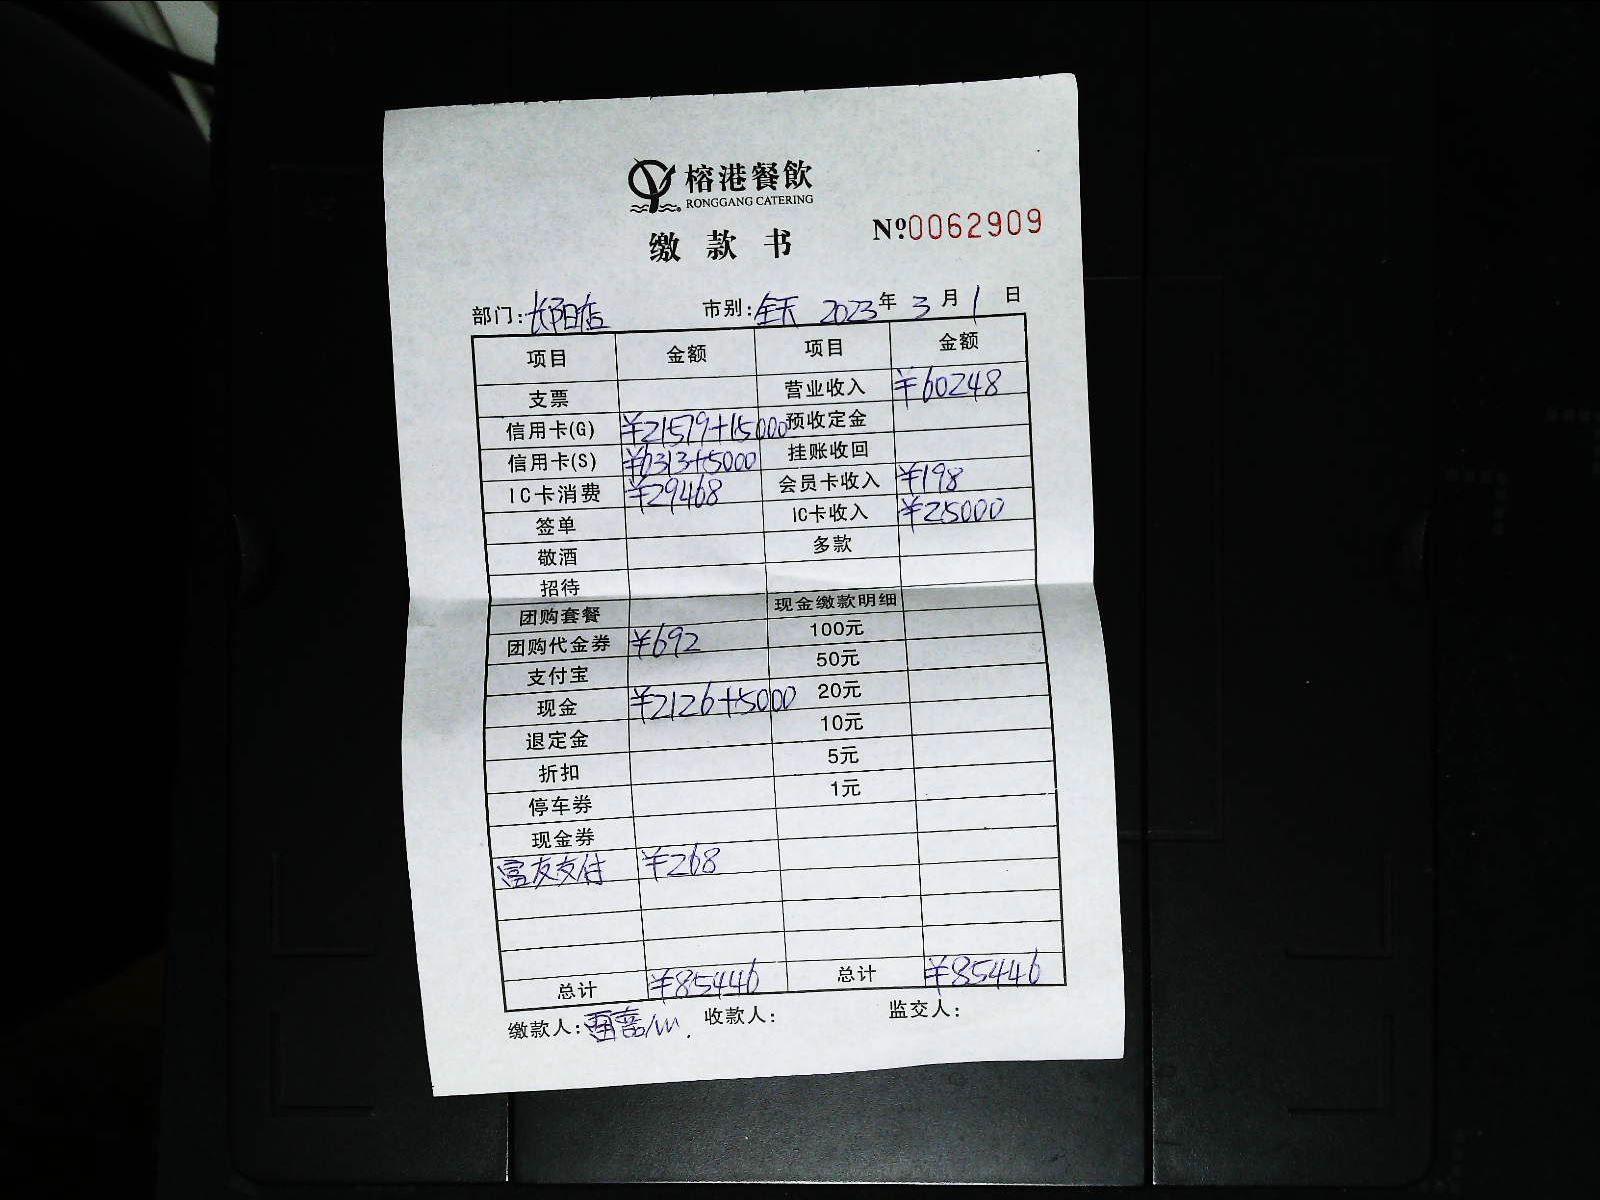 榕港餐飲
RONGGANG CATERING
缴款书
№0062909
部门: 长阳店 市别: 全天 2023年 3月 1日
项目 金额 项目 金额
支票 营业收入 ¥60248
信用卡(G) ¥21579+15000 预收定金
信用卡(S) ¥6313+5000 挂账收回
IC卡消费 ¥29468 会员卡收入 ¥198
签单 IC卡收入 ¥25000
敬酒 多款
招待
团购套餐 现金缴款明细
团购代金券 ¥692 100元
支付宝 50元
现金 ¥2126+5000 20元
退定金 10元
折扣 5元
停车券 1元
现金券
富友支付 ¥268
总计 ¥85446 总计 ¥85446
缴款人: 收款人: 监交人: